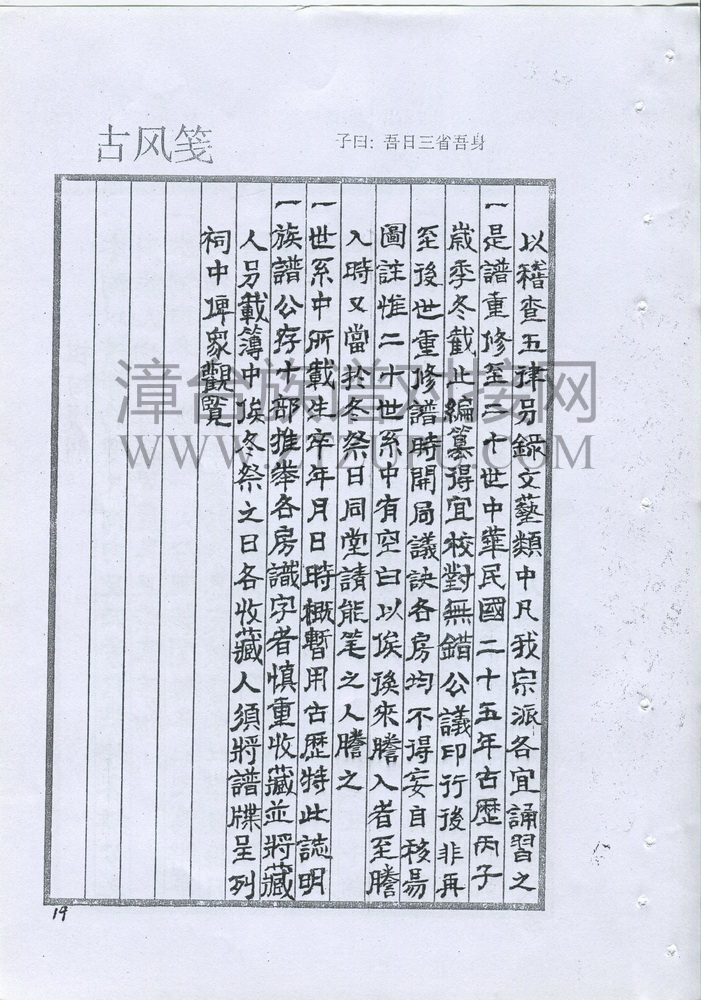 古风笺
子曰：吾日三省吾身
以稽查五律另錄文藝類中凡我宗派各宜誦習之
一是譜重修至二十世中華民國二十五年古歷丙子
歲季冬截止編纂得宜校對無錯公議印行後非再
至後世重修譜時開局議訣各房均不得妄自移易
圖註惟二十世系中有空白以俟後來謄入者至謄
入時又當於冬祭日同堂請能笔之人謄之
一世系中所載生卒年月日時概暫用古歷特此誌明
一族譜公存十部推举各房識字者慎重收藏並將藏
人另載簿中俟冬祭之日各收藏人須將譜牒呈列
祠中俾衆觀覧
漳台族谱对接网
19